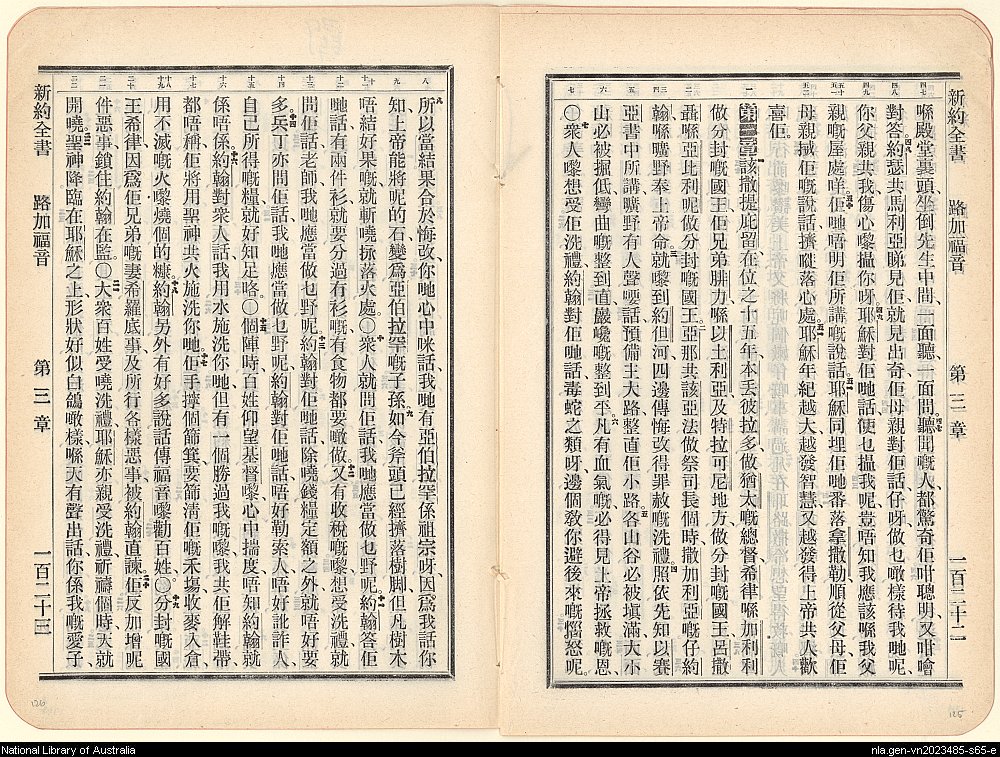 新約全書 路加福音 第三章 一百二十二
喺殿堂裏頭、坐倒先生中間、一面聽、一面問、聽聞嘅人、都驚奇佢咁聰明、又咁噲
對答、約瑟共馬利亞睇見佢、就見出奇、佢母親對佢話、仔呀、做乜噉樣待我哋呢、
你父親共我傷心嚟搵你呀、耶穌對佢哋話、使乜搵我呢、豈唔知我應該喺我父
親嘅屋處咩、佢哋唔明佢所講嘅說話、耶穌同埋佢哋番落拿撒勒、順從父母、佢
母親摵佢嘅說話擠𡁵落心處、耶穌年紀越大、越發智慧、又越發得上帝共人歡
喜佢。
第三章 該撒提庇留、在位之十五年、本丟彼拉多做猶太嘅總督、希律喺加利利
做分封嘅國王、佢兄弟腓力、喺以土利亞、及特拉可尼地方、做分封嘅國王、呂撒
聶喺亞比利呢做分封嘅國王、亞那共該亞法做祭司長、個時撒加利亞嘅仔約
翰喺曠野奉上帝命、就嚟到約但河四邊、傳悔改得罪赦嘅洗禮、照依先知以賽
亞書中所講、曠野有人聲嗌話、預備主大路、整直佢小路、各山谷必被塡滿、大小
山必被掘低、彎曲嘅整到直、巖巉嘅整到平、凡有血氣嘅、必得見上帝拯救嘅恩
〇衆人嚟想受佢洗禮、約翰對佢哋話、毒蛇之類呀、邊個敎你避後來嘅惱怒呢。
所以當結果、合於悔改、你哋心中咪話、我哋有亞伯拉罕係祖宗呀、因爲我話你
知、上帝能將呢的石、變爲亞伯拉罕嘅子孫、如今斧頭已經擠落樹脚、但凡樹木
唔結好果嘅、就斬嘵揼落火處。〇衆人就問佢話、我哋應當做乜野呢、約翰答佢
哋話、有兩件衫、就要分過冇衫嘅、有食物都要噉做、又有收稅嘅嚟想受洗禮、就
問佢話、老師、我哋應當做乜野呢、約翰對佢哋話、除嘵錢糧定額之外、就唔好要
多、兵丁亦問佢話、我哋應當做乜野呢、約翰對佢哋話、唔好勒索人、唔好訛詐人、
自己所得嘅糧、就好知足咯。〇個陣時百姓仰望基督嚟、心中揣度、唔知約翰就
係唔係、約翰對衆人話、我用水施洗你哋、但有一個勝過我嘅嚟、我共佢解鞋帶
都唔稱、佢將用聖神共火施洗你哋、佢手擰個篩箕、要篩淸佢嘅禾塲、收麥入倉、
用不滅嘅火嚟燒個的糠、約翰另外有好多說話、傳福音嚟勸百姓。〇分封嘅國
王希律、因爲佢兄弟嘅妻希羅底事、及所行各樣惡事、被約翰直諫、佢反加增呢
件惡事、鎖住約翰在監。〇大衆百姓受嘵洗禮、耶穌亦親受洗禮、祈禱個時、天就
開嘵、聖神降臨在耶穌之上、形狀好似白鴿噉樣、喺天有聲出話、你係我嘅愛子、
新約全書 路加福音 第三章 一百二十三
126
125
National Library of Australia
nla.gen-vn2023485-s65-e